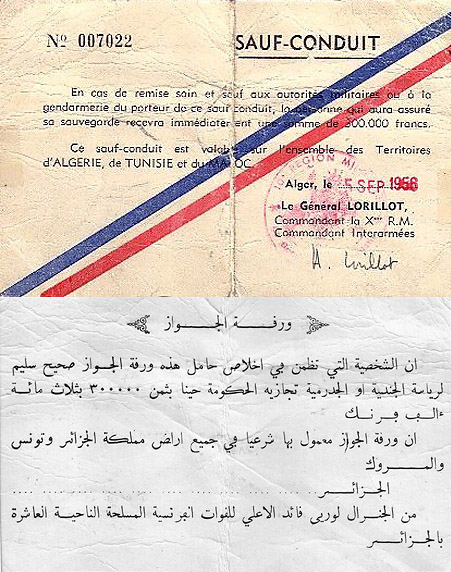 Nº 007022
SAUF-CONDUIT
En cas de remise sain et sauf aux autorités militaires ou à la
gendarmerie du porteur de ce sauf conduit, la personne qui aura assuré
sa sauvegarde recevra immédiatement une somme de 300.000 francs.
Ce sauf-conduit est valable sur l'ensemble des Territoires
d'ALGERIE, de TUNISIE et du MAROC.
Alger, le 5 SEP 1956
Le Général LORILLOT,
Commandant la Xme R.M.
Commandant Interarmées
H. Lorillot
REGION MI
ورقة الجواز
ان الشخصية التي تظمن في اخلاص حامل هذه ورقة الجواز صحيح سليم
لرياسة الجندية او الجدرمية تجازيه الحكومة حينا بثمن ٣٠٠٠٠٠ بثلاث مائة
ءالف فرنك
ان ورقة الجواز معمول بها شرعيا في جميع اراض مملكة الجزائر وتونس
والمروك
الجزائر
من الجنرال لوريى قائد الاعلي للقوات انفرنسية المسلحة الناحية العاشرة
بالجزائر